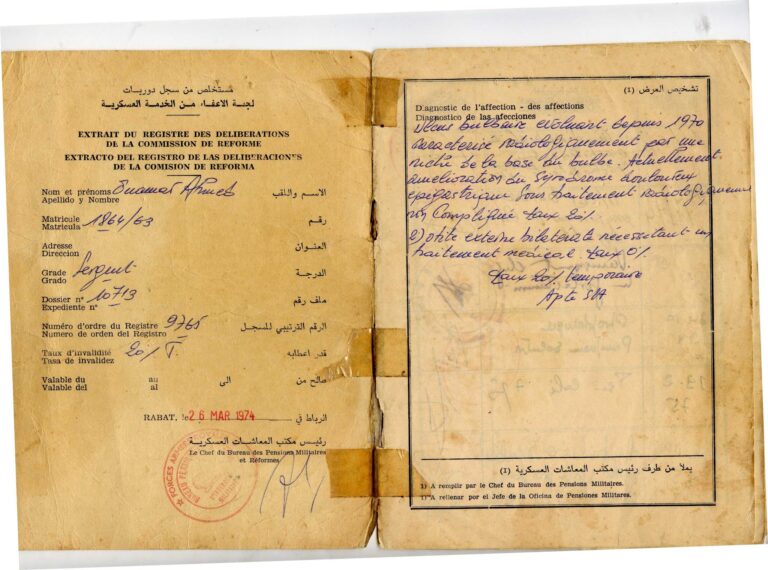 مستخلص من سجل دوريات
لجنة الأعفاء من الخدمة العسكرية
EXTRAIT DU REGISTRE DES DELIBERATIONS
DE LA COMMISSION DE REFORME
EXTRACTO DEL REGISTRO DE LAS DELIBERACIONES
DE LA COMISION DE REFORMA
Nom et prénoms Ouamar Ahmed الاسم واللقب
Apellido y Nombre
Matricule 1864/63 رقم
Matricula
Adresse العنوان
Direccion
Grade Sergent الدرجة
Grado
Dossier n° 10713 ملف رقم
Expediente n°
Numéro d'ordre du Registre 9765 الرقم الترتيبي للسجل
Numero de orden del Registro
Taux d'invalidité 20% T. قدر اعطابه
Tasa de invalidez
Valable du au الى صالح من
Valable del al
RABAT, le 26 MAR 1974 الرباط في
رئيس مكتب المعاشات العسكرية
Le Chef du Bureau des Pensions Militaires
et Réformes
تشخيص المرض (1)
Diagnostic de l'affection - des affections
Diagnostico de las afecciones
Ulcus bulbaire évoluant depuis 1970
caracterisé radiologiquement par une
niche de la base du bulbe. Actuellement
amélioration du syndrome douloureux
epigastrique sous traitement radiologiquement
non compliqué taux 20%
2) otite externe bilatérale nécessitant un
traitement médical. taux 0%
taux 20% temporaire
Apte SA
(1) يملأ من طرف رئيس مكتب المعاشات العسكرية
1) A remplir par le Chef du Bureau des Pensions Militaires.
1) A rellenar por el Jefe de la Oficina de Pensiones Militares.